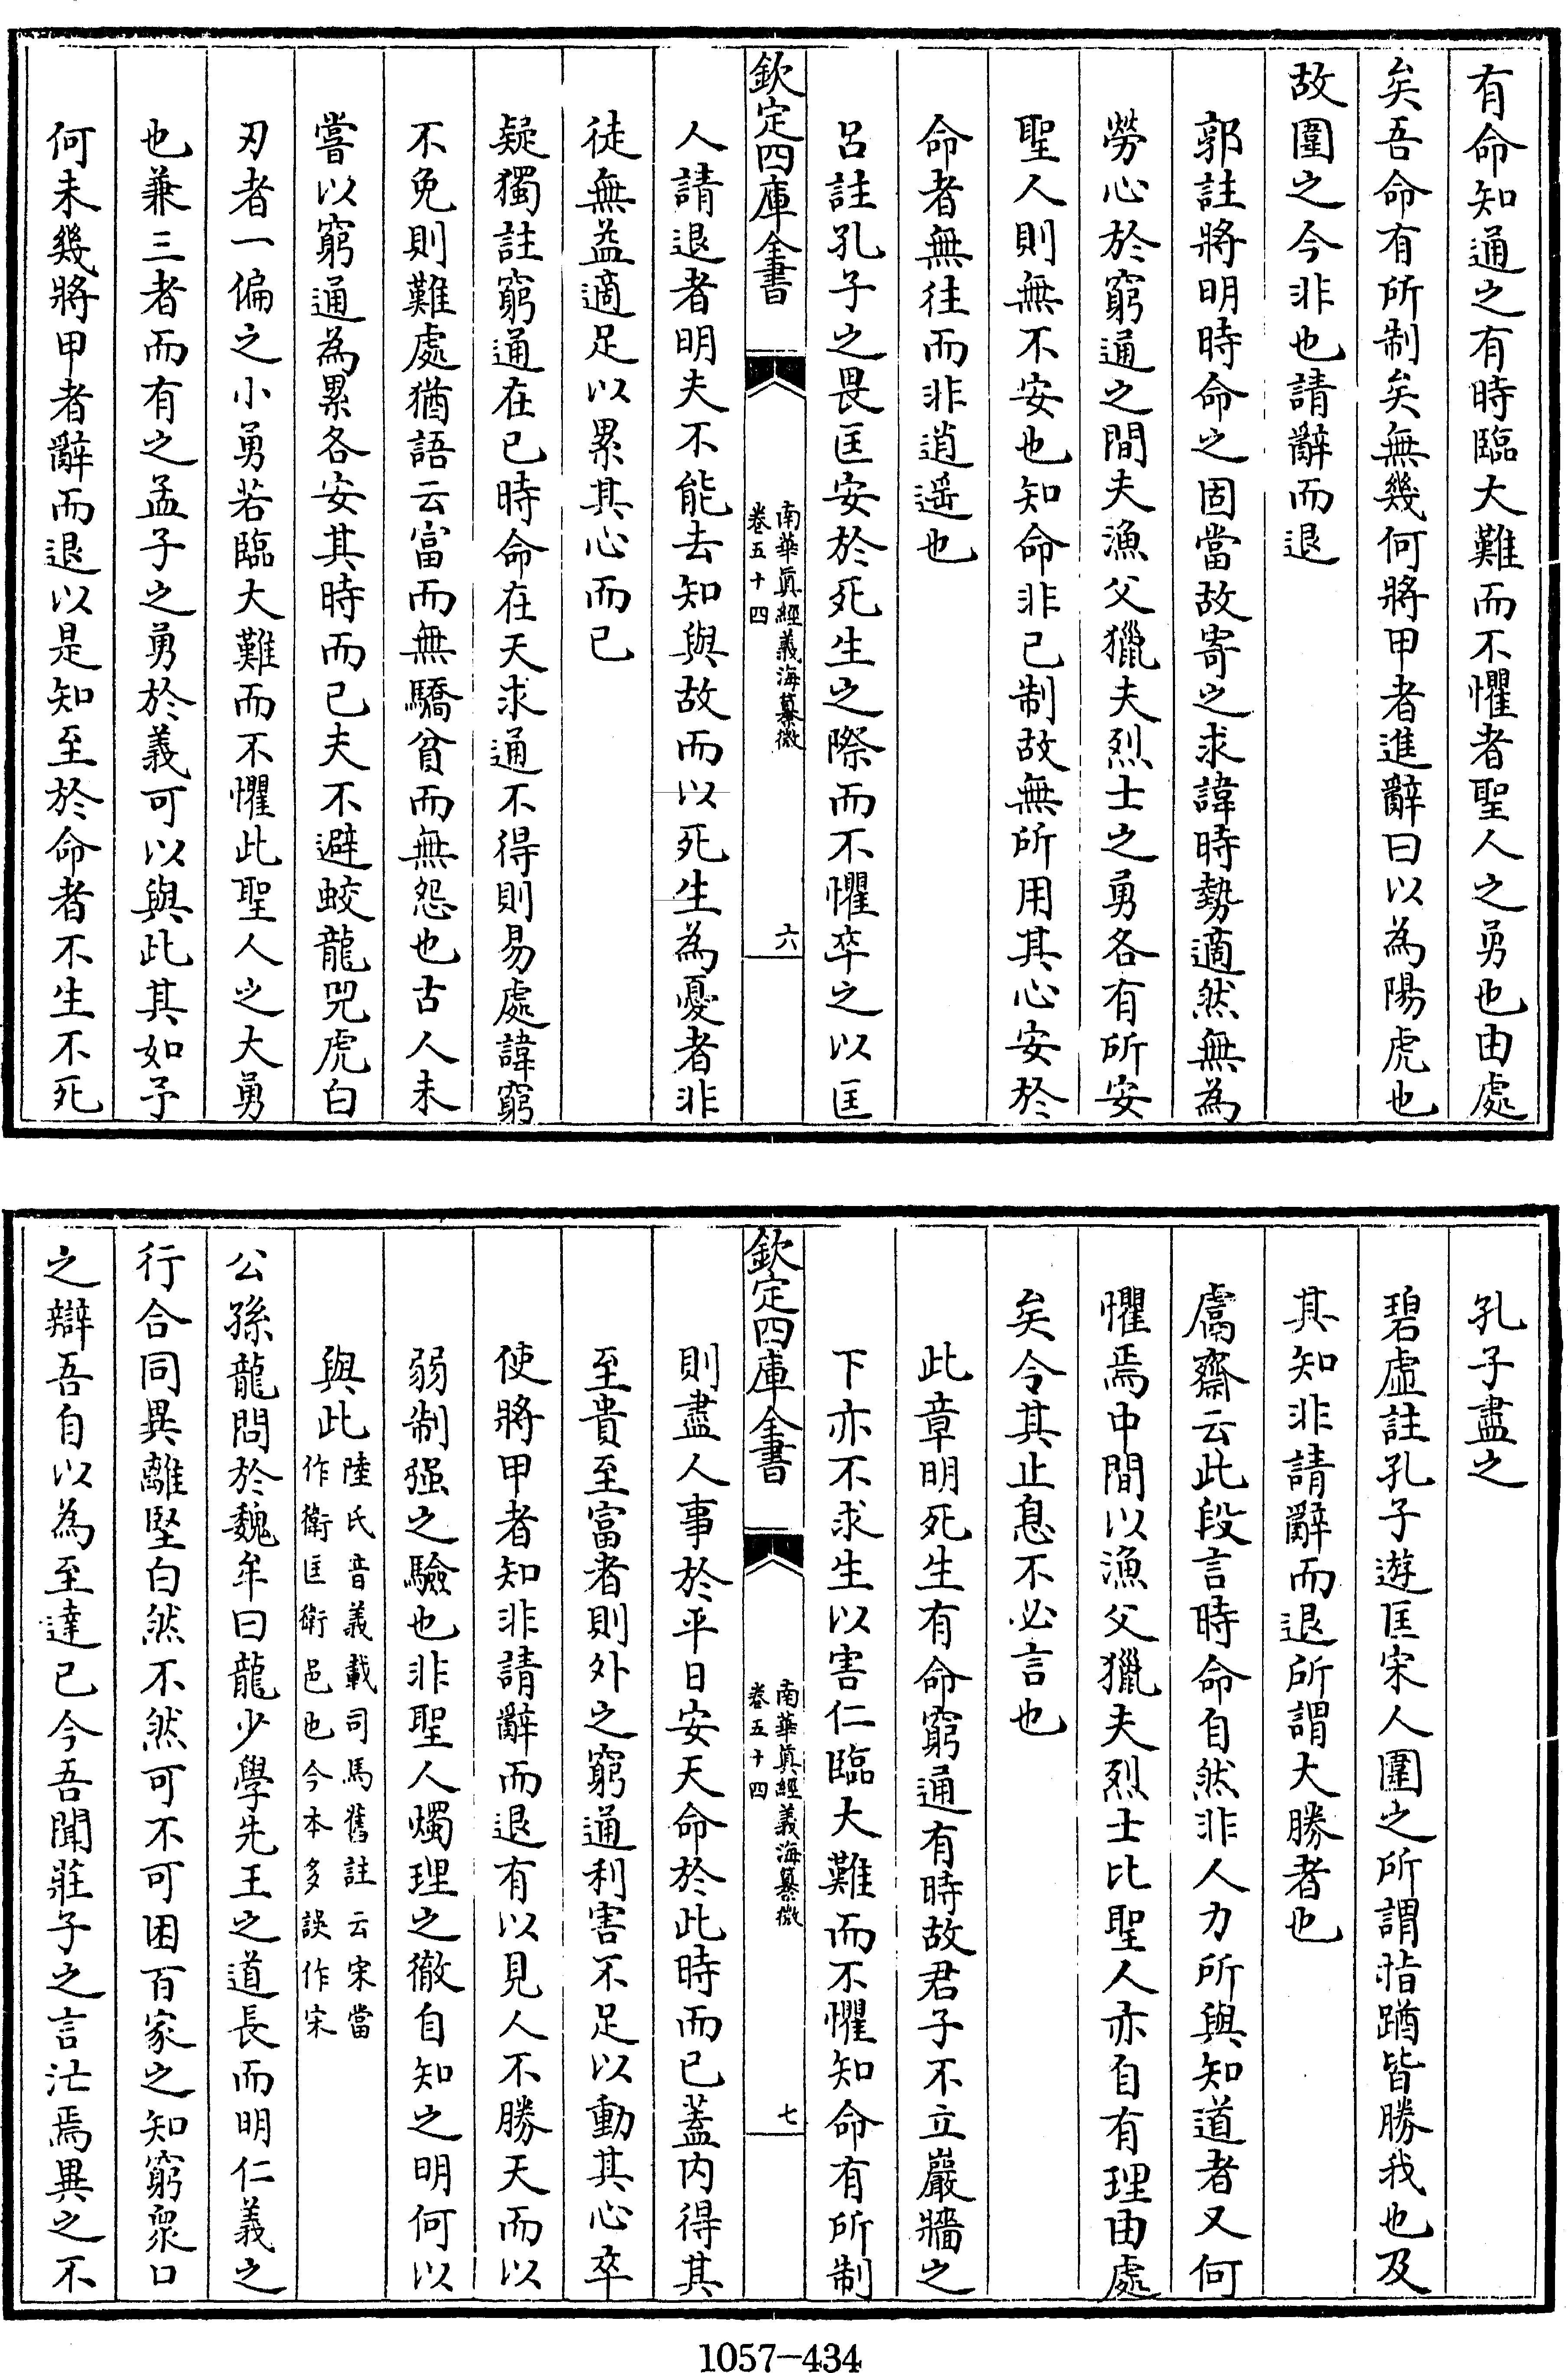 有命知通之有時臨大難而不懼者聖人之勇也由處
矣吾命有所制矣無幾何將甲者進辭曰以為陽虎也
故圍之今非也請辭而退
郭註將明時命之固當故寄之求諱時勢適然無為
勞心於窮通之間夫漁父獵夫烈士之勇各有所安
聖人則無不安也知命非己制故無所用其心安於
命者無往而非逍遥也
呂註孔子之畏匡安於死生之際而不懼卒之以匡
欽定四庫全書
南華真經義海纂微
卷五十四
六
人請退者明夫不能去知與故而以死生為憂者非
徒無益適足以累其心而已
疑獨註窮通在已時命在天求通不得則易處諱窮
不免則難處猶語云富而無驕貧而無怨也古人未
嘗以窮通為累各安其時而已夫不避蛟龍兕虎白
刃者一偏之小勇若臨大難而不懼此聖人之大勇
也兼三者而有之孟子之勇於義可以與此其如予
何未幾將甲者辭而退以是知至於命者不生不死
孔子盡之
碧虛註孔子遊匡宋人圍之所謂指蹈皆勝我也及
其知非請辭而退所謂大勝者也
鬳齋云此段言時命自然非人力所與知道者又何
懼焉中間以漁父獵夫烈士比聖人亦自有理由處
矣令其止息不必言也
此章明死生有命窮通有時故君子不立巖牆之
下亦不求生以害仁臨大難而不懼知命有所制
欽定四庫全書
南華真經義海纂微
卷五十四
七
則盡人事於平日安天命於此時而已蓋內得其
至貴至富者則外之窮通利害不足以動其心卒
使將甲者知非請辭而退有以見人不勝天而以
弱制强之驗也非聖人燭理之徹自知之明何以
與此陸氏音義載司馬舊註云宋當
作衛匡衛邑也今本多誤作宋
公孫龍問於魏牟曰龍少學先王之道長而明仁義之
行合同異離堅白然不然可不可困百家之知窮衆口
之辯吾自以為至達已今吾聞莊子之言汒焉異之不
1057-434